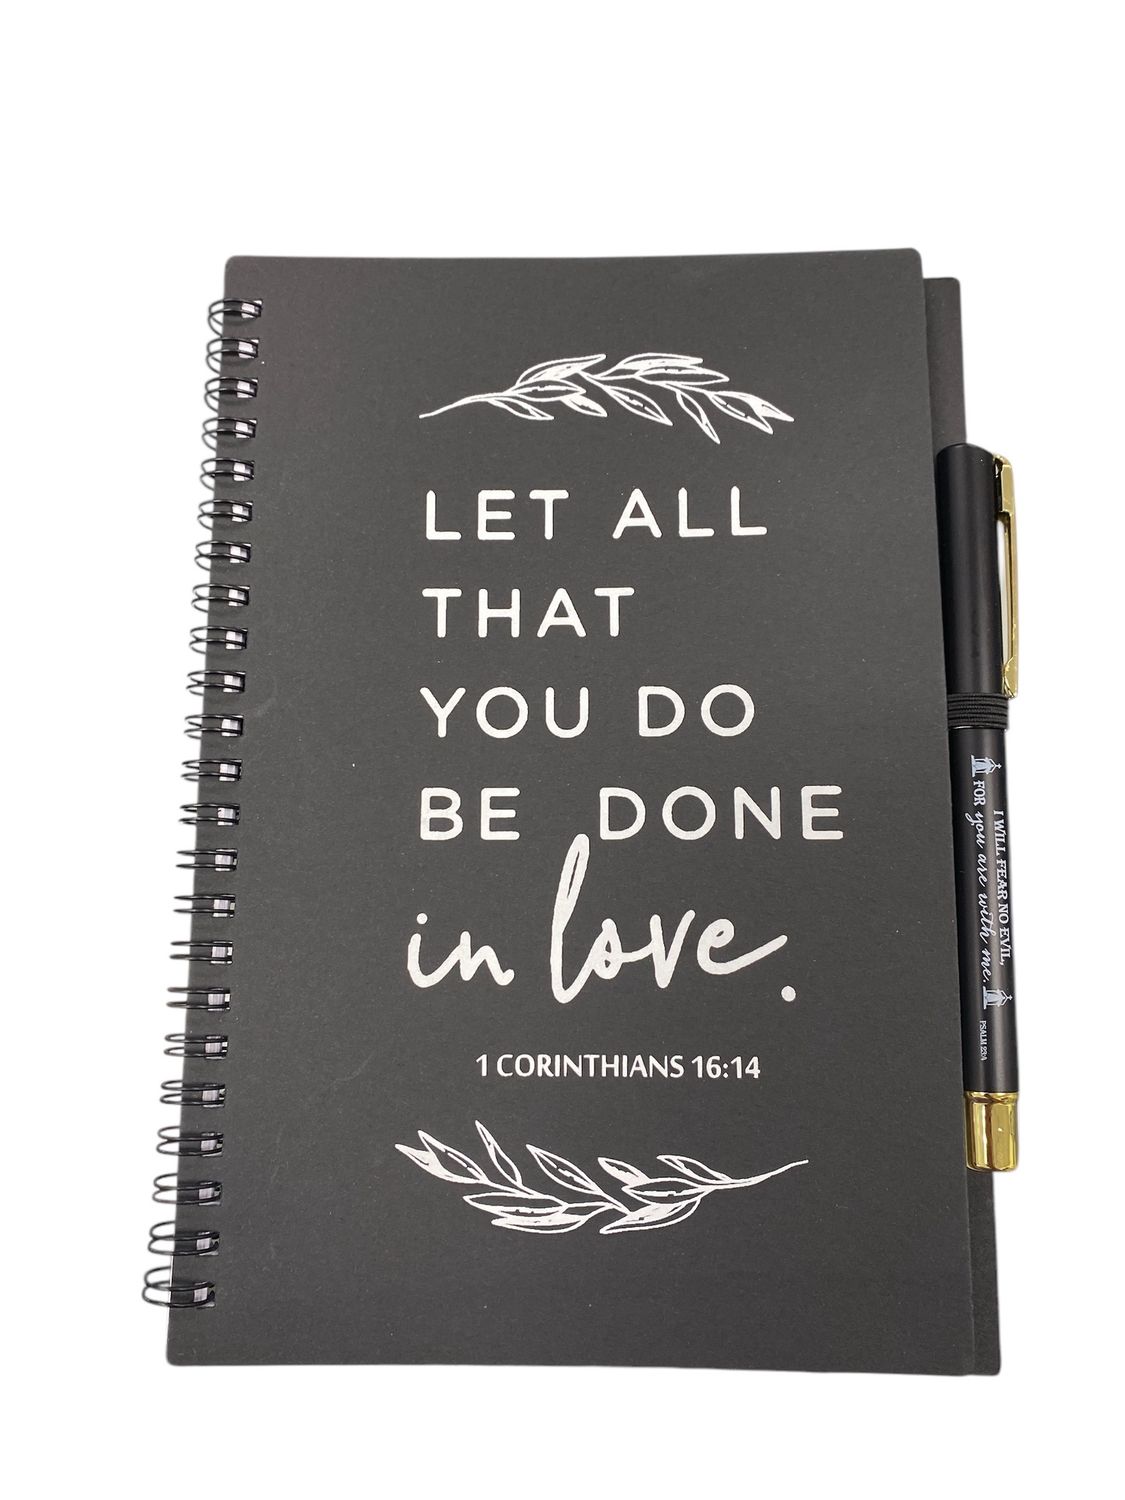 LET ALL
THAT
YOU DO
BE DONE
in love.
1 CORINTHIANS 16:14
I WILL FEAR NO EVIL,
FOR you are with me.
PSALM 23:4